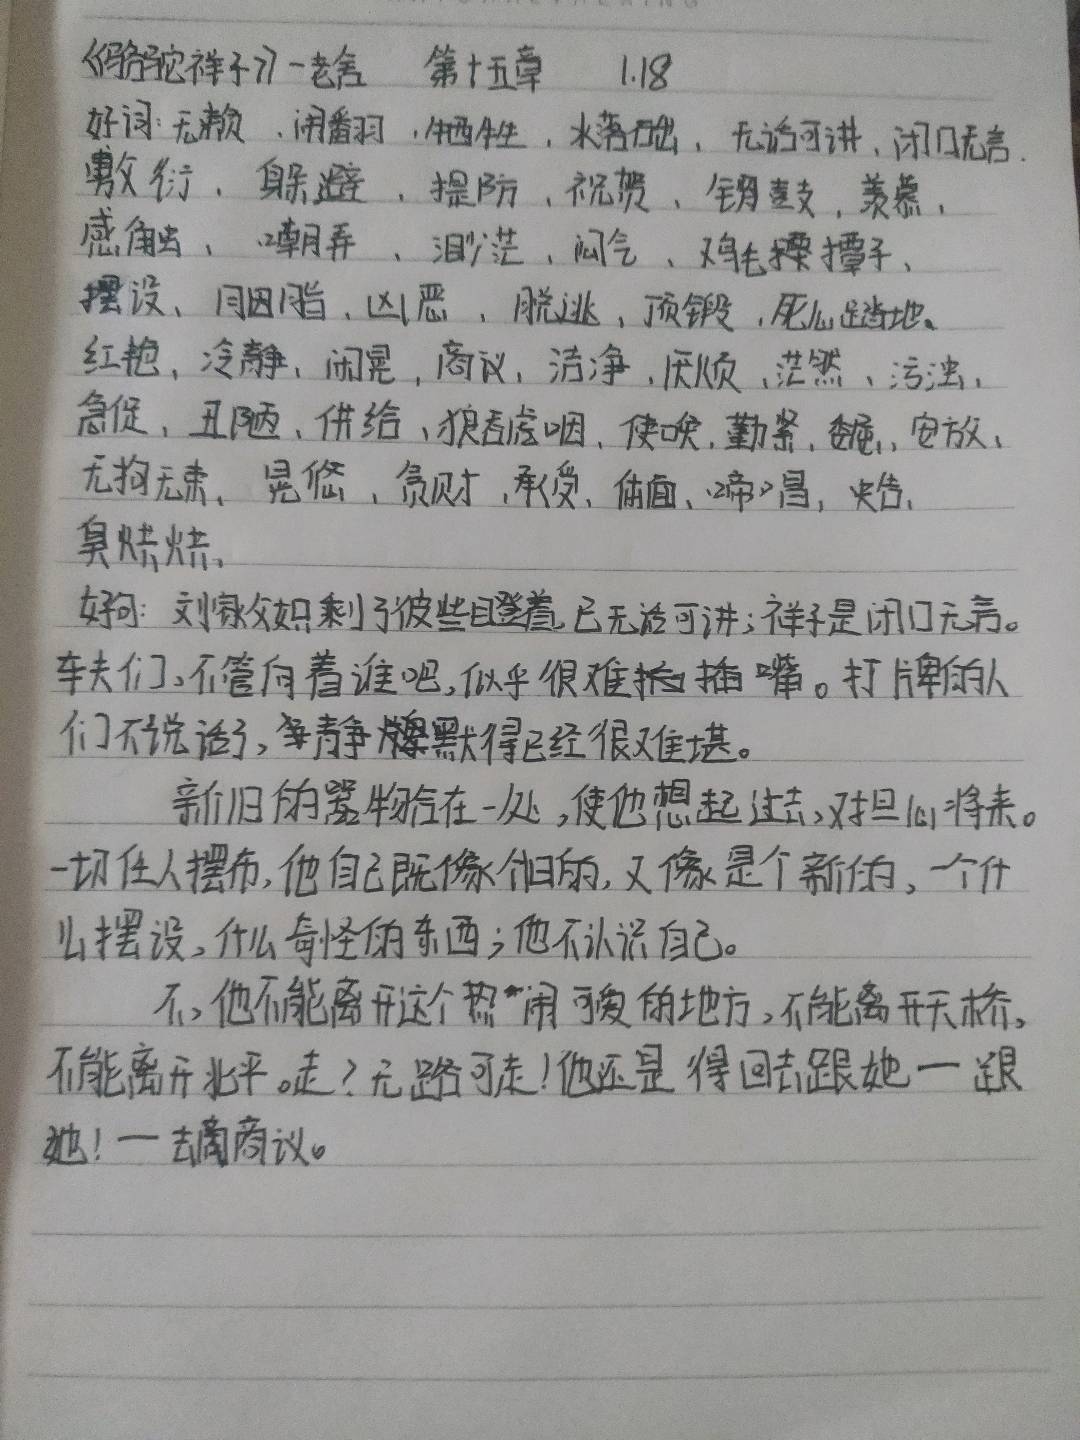 《骆驼祥子》-老舍 第十五章 1.18
好词:无赖、闹翻、牺牲、水落石出、无话可讲、闭口无言.
敷衍、躲避、提防、祝贺、锣鼓、羡慕、
感触、嘲弄、渺茫、闷气、鸡毛掸子、
摆设、胭脂、凶恶、脱逃、顶锻、死心踏地、
红艳、冷静、闲晃、商议、洁净、厌烦、茫然、污浊、
急促、丑陋、供给、狼吞虎咽、使唤、勤紧、安放、
无拘无束、晃悠、贪财、承受、体面、啼唱、央告、
臭烘烘、
好句:刘家父女只剩了彼此瞪着,已无话可讲;祥子是闭口无言。
车夫们,不管向着谁吧,似乎很难插嘴。打牌的人
们不说话了,静默得已经很难堪。
新旧的器物合在一处,使他想起过去,又担心将来。
一切任人摆布,他自己既像个旧的,又像是个新的,一个什
么摆设,什么奇怪的东西;他不认识自己。
不,他不能离开这个热闹可爱的地方,不能离开天桥,
不能离开北平。走?无路可走!他还是得回去跟她一跟
她!一去商议。